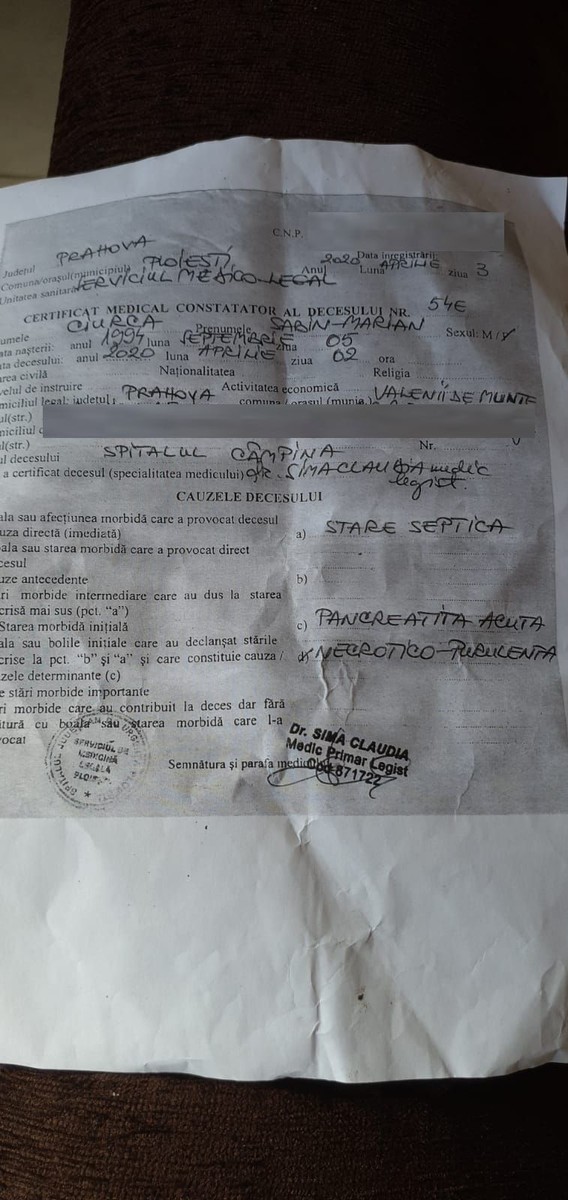 C.N.P.
Județul PRAHOVA
Comuna/orașul(municipiul) PLOIEȘTI Anul 2020 Luna APRILIE ziua 3
Data înregistrării:
Unitatea sanitară SERVICIUL MEDICO-LEGAL
CERTIFICAT MEDICAL CONSTATATOR AL DECESULUI NR. 54E
umele CIURCA Prenumele SABIN-MARIAN Sexul: M/F
ata nașterii: anul 1994 luna SEPTEMBRIE ziua 05
ata decesului: anul 2020 luna APRILIE ziua 02 ora
area civilă Naționalitatea Religia
velul de instruire Activitatea economică
miciliul legal: județul: PRAHOVA comuna (orașul (munic.) VALENII DE MUNTE
ul(str.)
miciliul
ul(str.) Nr.
ul decesului SPITALUL CÂMPINA
a certificat decesul (specialitatea medicului) DR. SIMA CLAUDIA medic
legist.
CAUZELE DECESULUI
ala sau afecțiunea morbidă care a provocat decesul
uza directă (imediată) a) STARE SEPTICA
oala sau starea morbidă care a provocat direct
cesul
uze antecedente b)
ri morbide intermediare care au dus la starea
crisă mai sus (pct. "a")
Starea morbidă inițială c) PANCREATITA ACUTA
ala sau bolile inițiale care au declanșat stările
crise la pct. "b" și "a" și care constituie cauza / NECROTICO-PURULENTA
zele determinante (c)
e stări morbide importante
ri morbide care au contribuit la deces dar fără
itură cu boala sau starea morbidă care l-a
vocat
SERVICIUL DE
MEDICINĂ
LEGALĂ
Semnătura și parafa medicului
Dr. SIMA CLAUDIA
Medic Primar Legist
Cod 871722